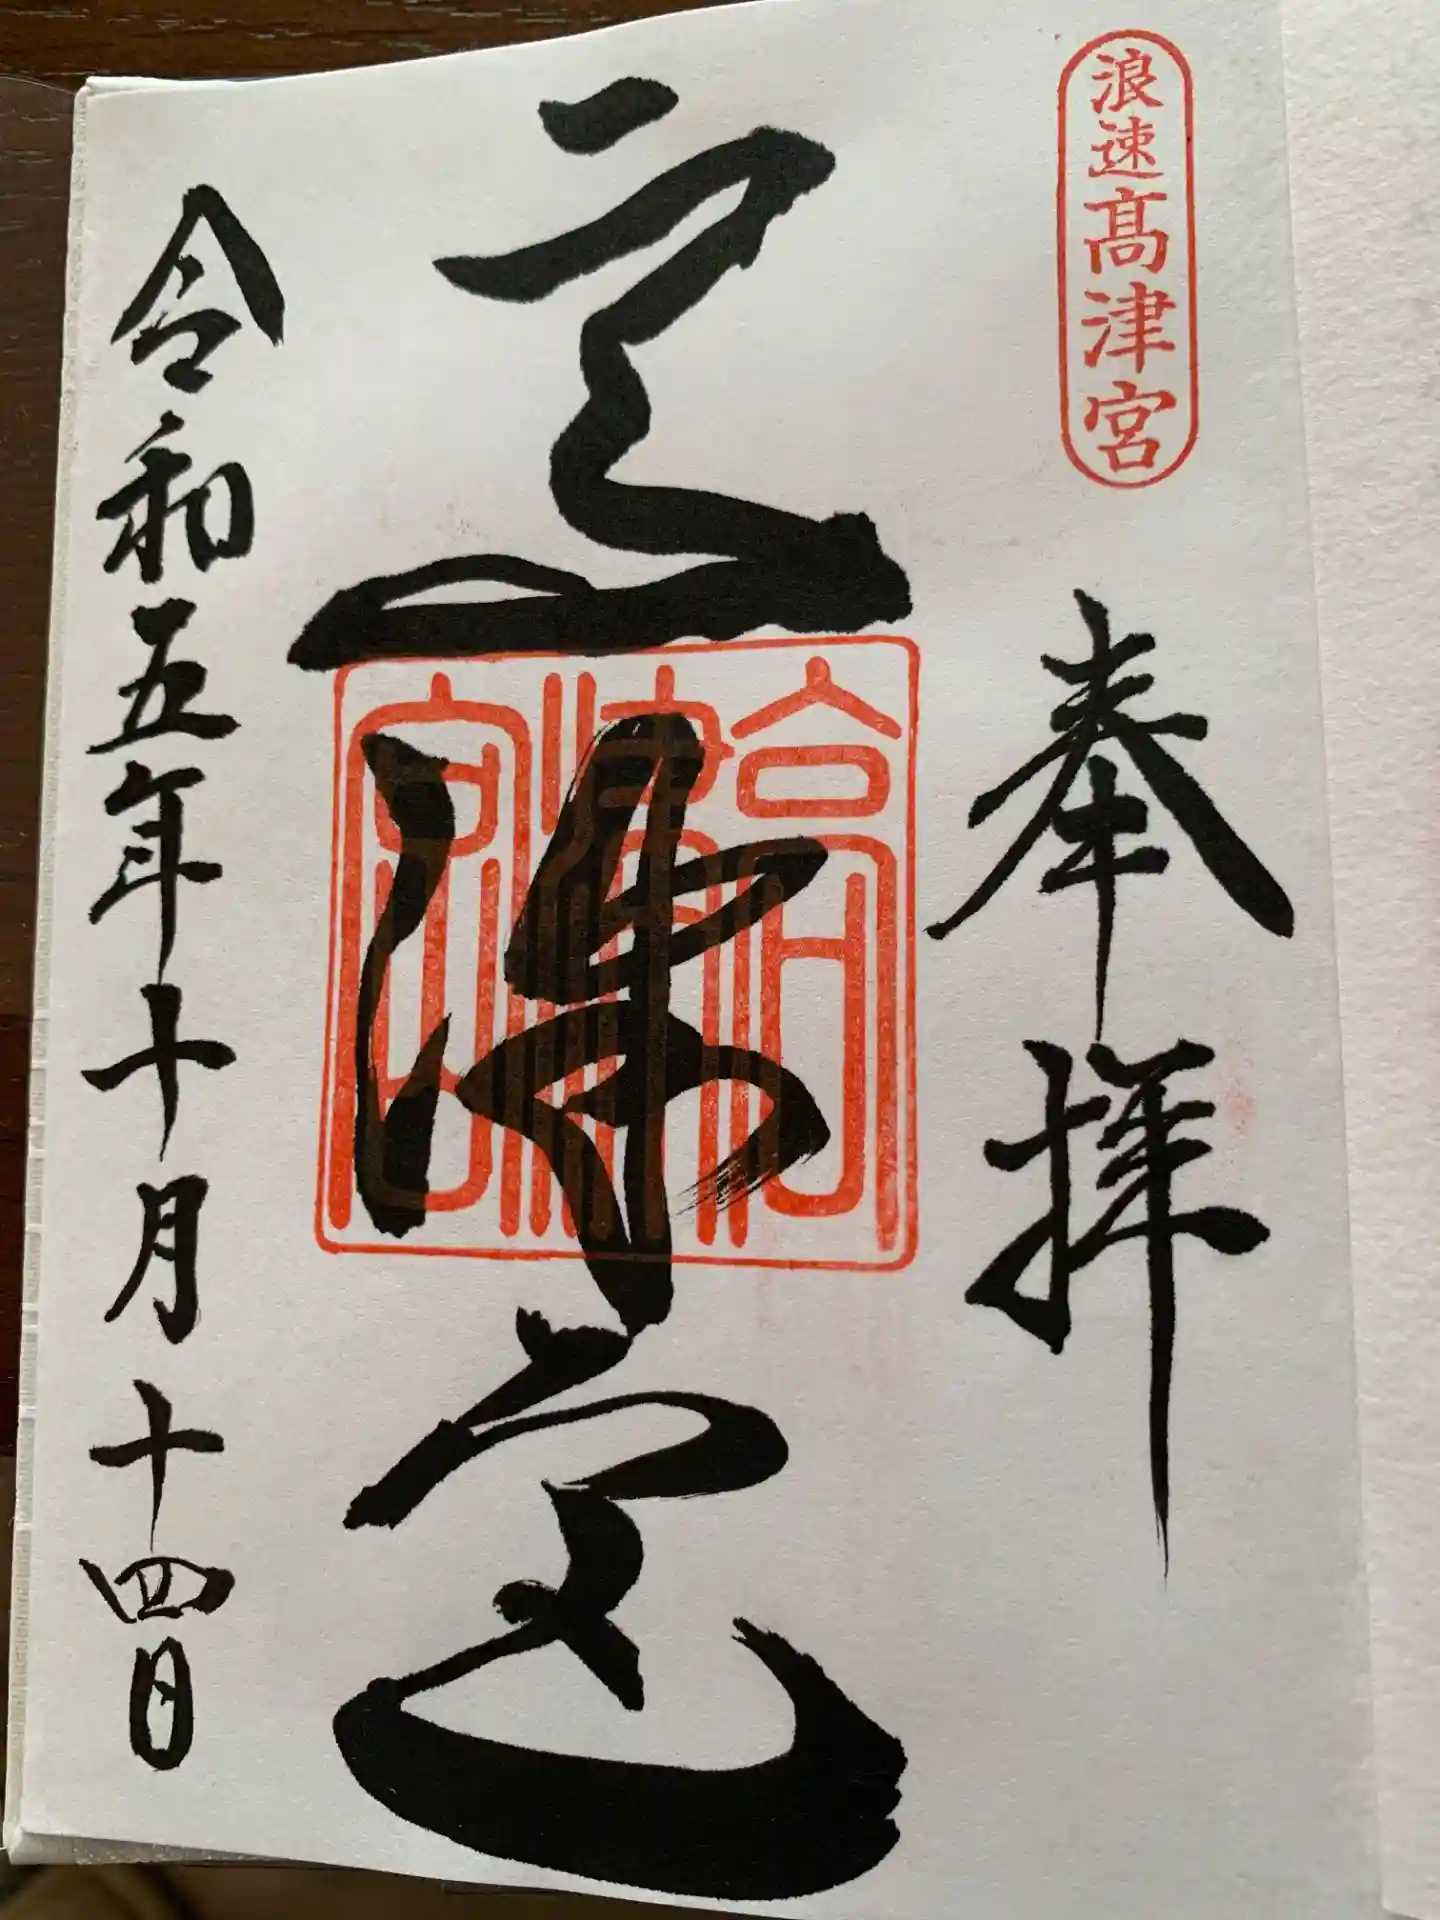 浪速髙津宮
奉拝
高津宮
高津宮
令和五年十月十四日